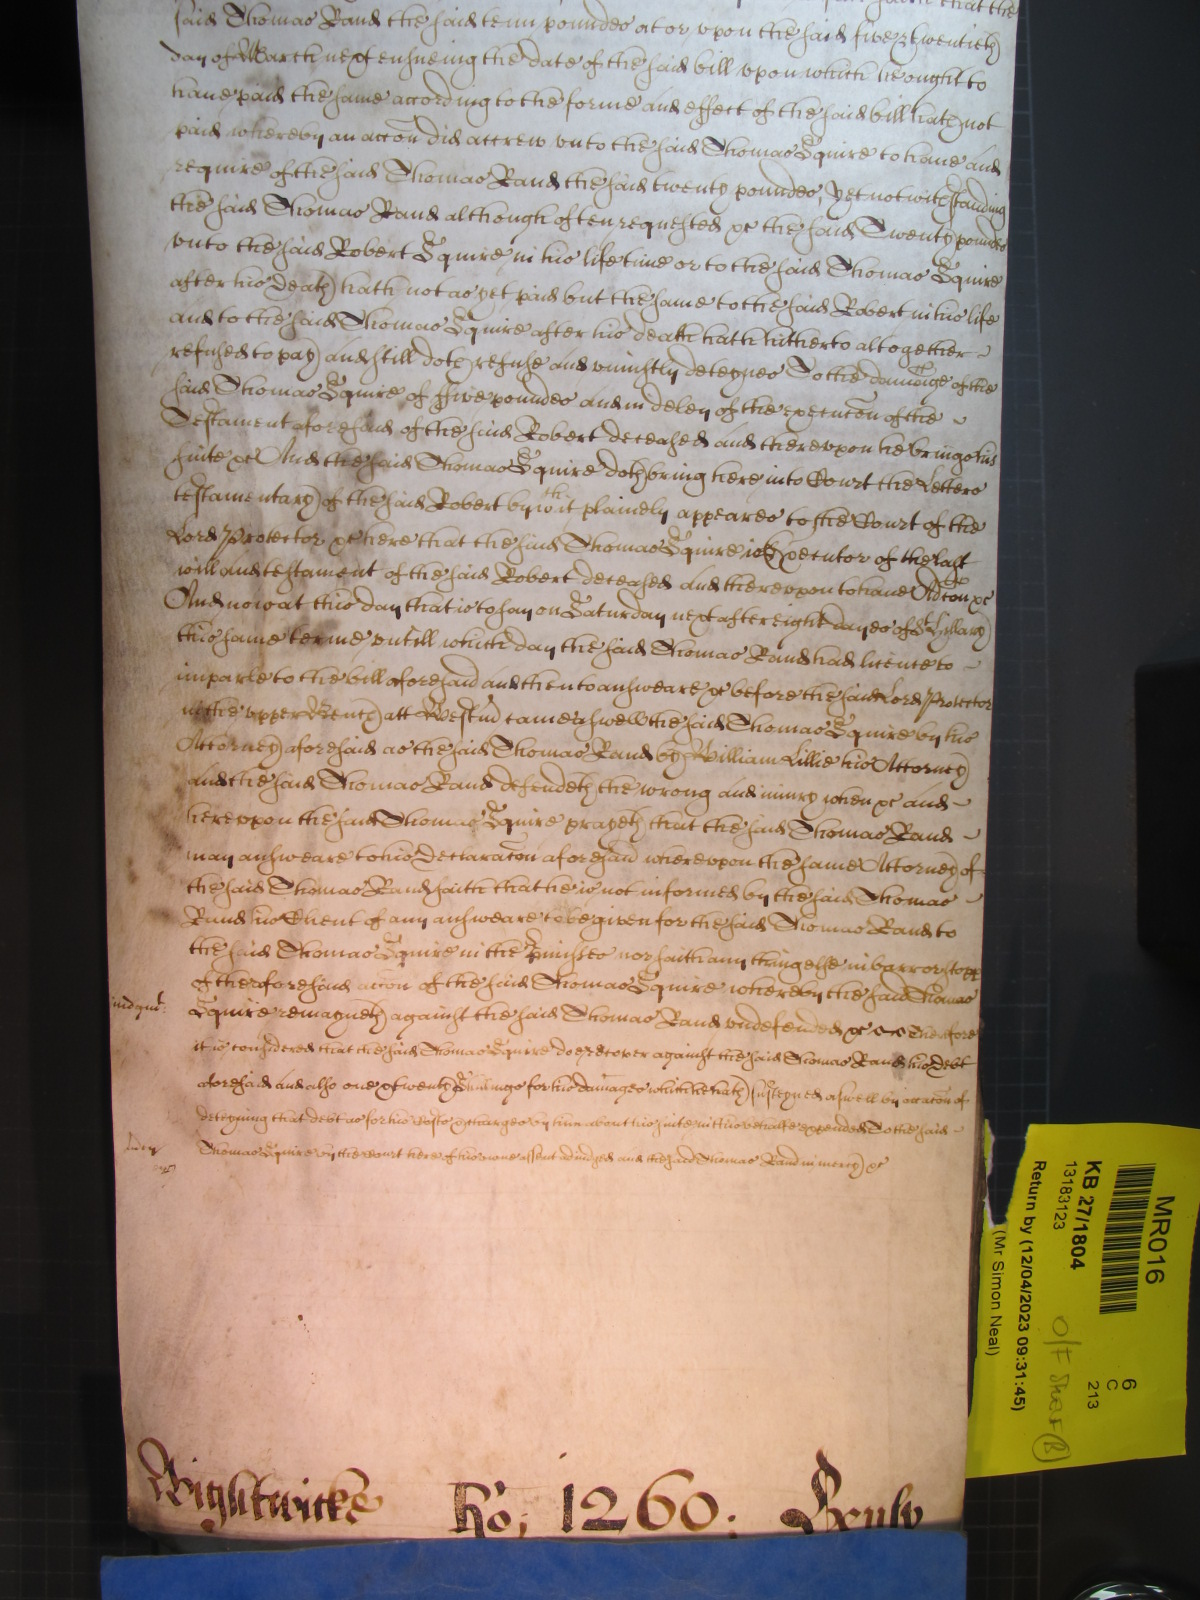 said Thomas Rand the said tenn poundes at or upon the said five & twentieth
day of March next ensueing the date of the said bill upon which he ought to
have paid the same according to the forme and effect of the said bill hath not
paid whereby an accon did accrew unto the said Thomas Squire to have and
require of the said Thomas Rand the said twenty poundes, Yet notwithstanding
the said Thomas Rand although often requested &c the said Twenty poundes
unto the said Robert Squire in his life time or to the said Thomas Squire
after his Death hath not as yet paid but the same to the said Robert in his life
and to the said Thomas Squire after his death hath hitherto altogether
refused to pay and still doth refuse and uniustly deteynes To the damage of the
said Thomas Squire of ffive poundes and in delay of the execucon of the
Testament aforesaid of the said Robert deceased and thereupon he bringes his
suite &c And the said Thomas Squire doth bring here into Court the Letters
testamentary of the said Robert by wch it plainely appeares to the Court of the
Lord Protector &c here that the said Thomas Squire is Executor of the last
will and testament of the said Robert deceased and thereupon to have Accon &c
And now at this day that is to say on Saturday next after eight dayes of St Hillary
this same terme untill which day the said Thomas Rand had licence to
imparle to the bill aforesaid and then to answeare &c before the said Lord Protector
in the upper Bench att Westm came aswell the said Thomas Squire by his
Attorney aforesaid as the said Thomas Rand by William Lillie his Attorney
and the said Thomas Rand defendeth the wrong and iniury when &c and
hereupon the said Thomas Squire prayeth that the said Thomas Rand
may answeare to his Declaracon aforesaid whereupon the same Attorney of
the said Thomas Rand saith that he is not informed by the said Thomas
Rand his Clyent of any answeare to be given for the said Thomas Rand to
the said Thomas Squire in the p'misses nor saith any thing else in barr or stopp
of the aforesaid accon of the said Thomas Squire whereby the said Thomas
iudgmt: Squire remayneth against the said Thomas Rand undefended &c Therefore
it is considered that the said Thomas Squire doe recover against the said Thomas Rand his Debt
aforesaid and also one & twenty Shillings for his damages which he hath susteyned aswell by occacon of
deteyning that debt as for his Costs & charges by him about his suite in this behalfe expended To the said
Thomas Squire by the Court here of his owne assent adiudged and the said Thomas Rand in mercy &c
Wightwicke Ro; 1260;
MR016
KB 27/1804
13183123
Return by (12/04/2023 09:31:45)
(Mr Simon Neal)
6
C
213